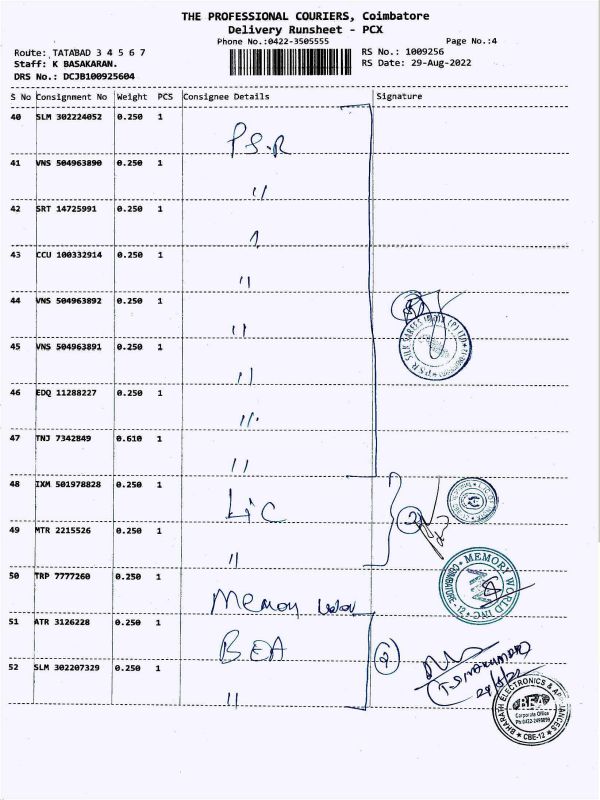 THE PROFESSIONAL COURIERS, Coimbatore
Delivery Runsheet - PCX
Phone No.:0422-3505555 Page No.:4
Route: TATABAD 3 4 5 6 7 RS No.: 1009256
Staff: K BASAKARAN. RS Date: 29-Aug-2022
DRS No.: DCJB100925604
S No Consignment No Weight PCS Consignee Details Signature
40 SLM 302224052 0.250 1 P.S.R
41 VNS 504963890 0.250 1 "
42 SRT 14725991 0.250 1
43 CCU 100332914 0.250 1 "
44 VNS 504963892 0.250 1 "
45 VNS 504963891 0.250 1 "
46 EDQ 11288227 0.250 1 "
47 TNJ 7342849 0.610 1 "
48 IXM 501978828 0.250 1 LiC
49 MTR 2215526 0.250 1 "
50 TRP 7777260 0.250 1 Memory
51 ATR 3126228 0.250 1 BEA
52 SLM 302207329 0.250 1 "
2
MEMORY WORLD INC
COIMBATORE - 12
2
29/8/22
BHARATH ELECTRONICS & APPLIANCES
BEA
Corporate Office
CBE-12